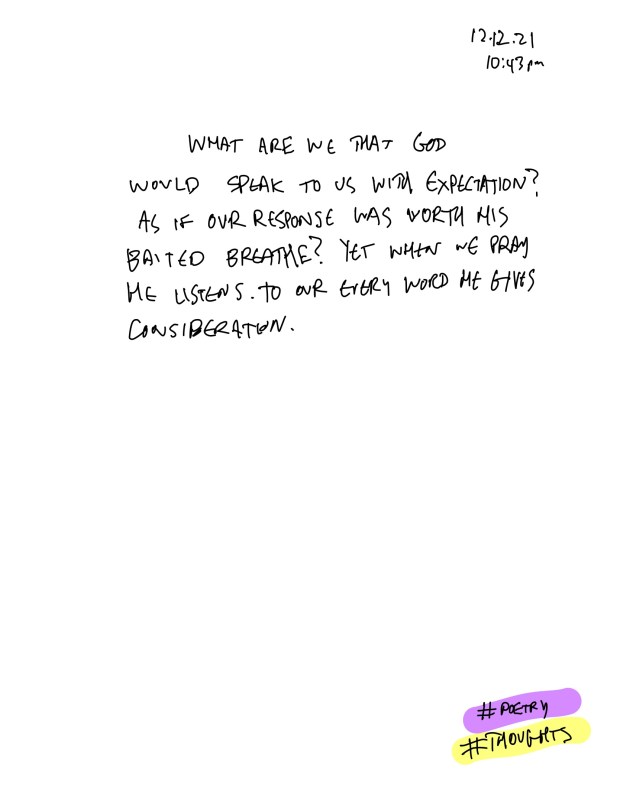 12.12.21
10:43pm
WHAT ARE WE THAT GOD
WOULD SPEAK TO US WITH EXPECTATION?
AS IF OUR RESPONSE WAS WORTH HIS
BAITED BREATHE? YET WHEN WE PRAY
HE LISTENS. TO OUR EVERY WORD HE GIVES
CONSIDERATION.
#POETRY
#THOUGHTS